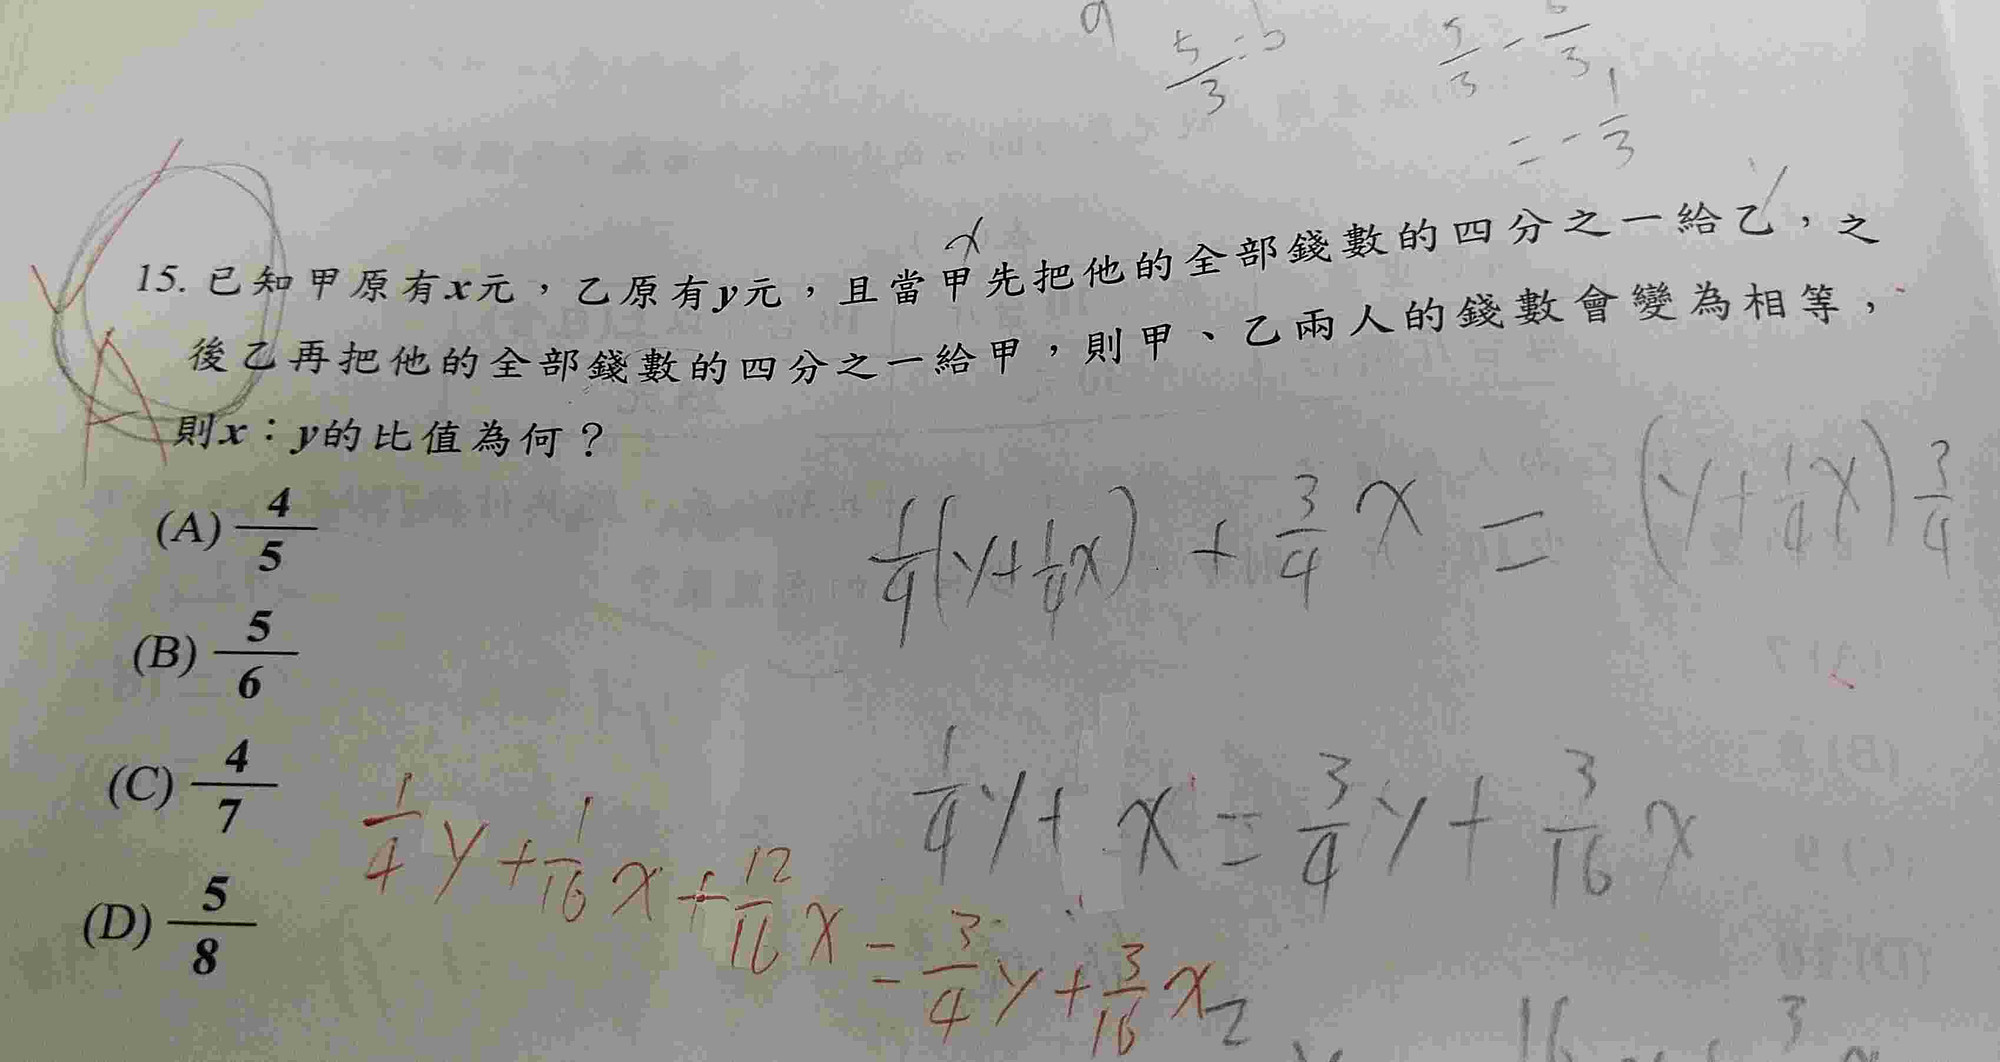 5/3 = b
5/3 - 5/3
= - 1/3
x
15. 已知甲原有x元，乙原有y元，且當甲先把他的全部錢數的四分之一給乙，之
後乙再把他的全部錢數的四分之一給甲，則甲、乙兩人的錢數會變為相等，
則x：y的比值為何？
A
(A) 4/5
(B) 5/6
(C) 4/7
(D) 5/8
1/4(y+1/4x) + 3/4 x = (y+1/4x) 3/4
1/4 y + x = 3/4 y + 3/16 x
1/4 y + 1/16 x + 12/16 x = 3/4 y + 3/16 x